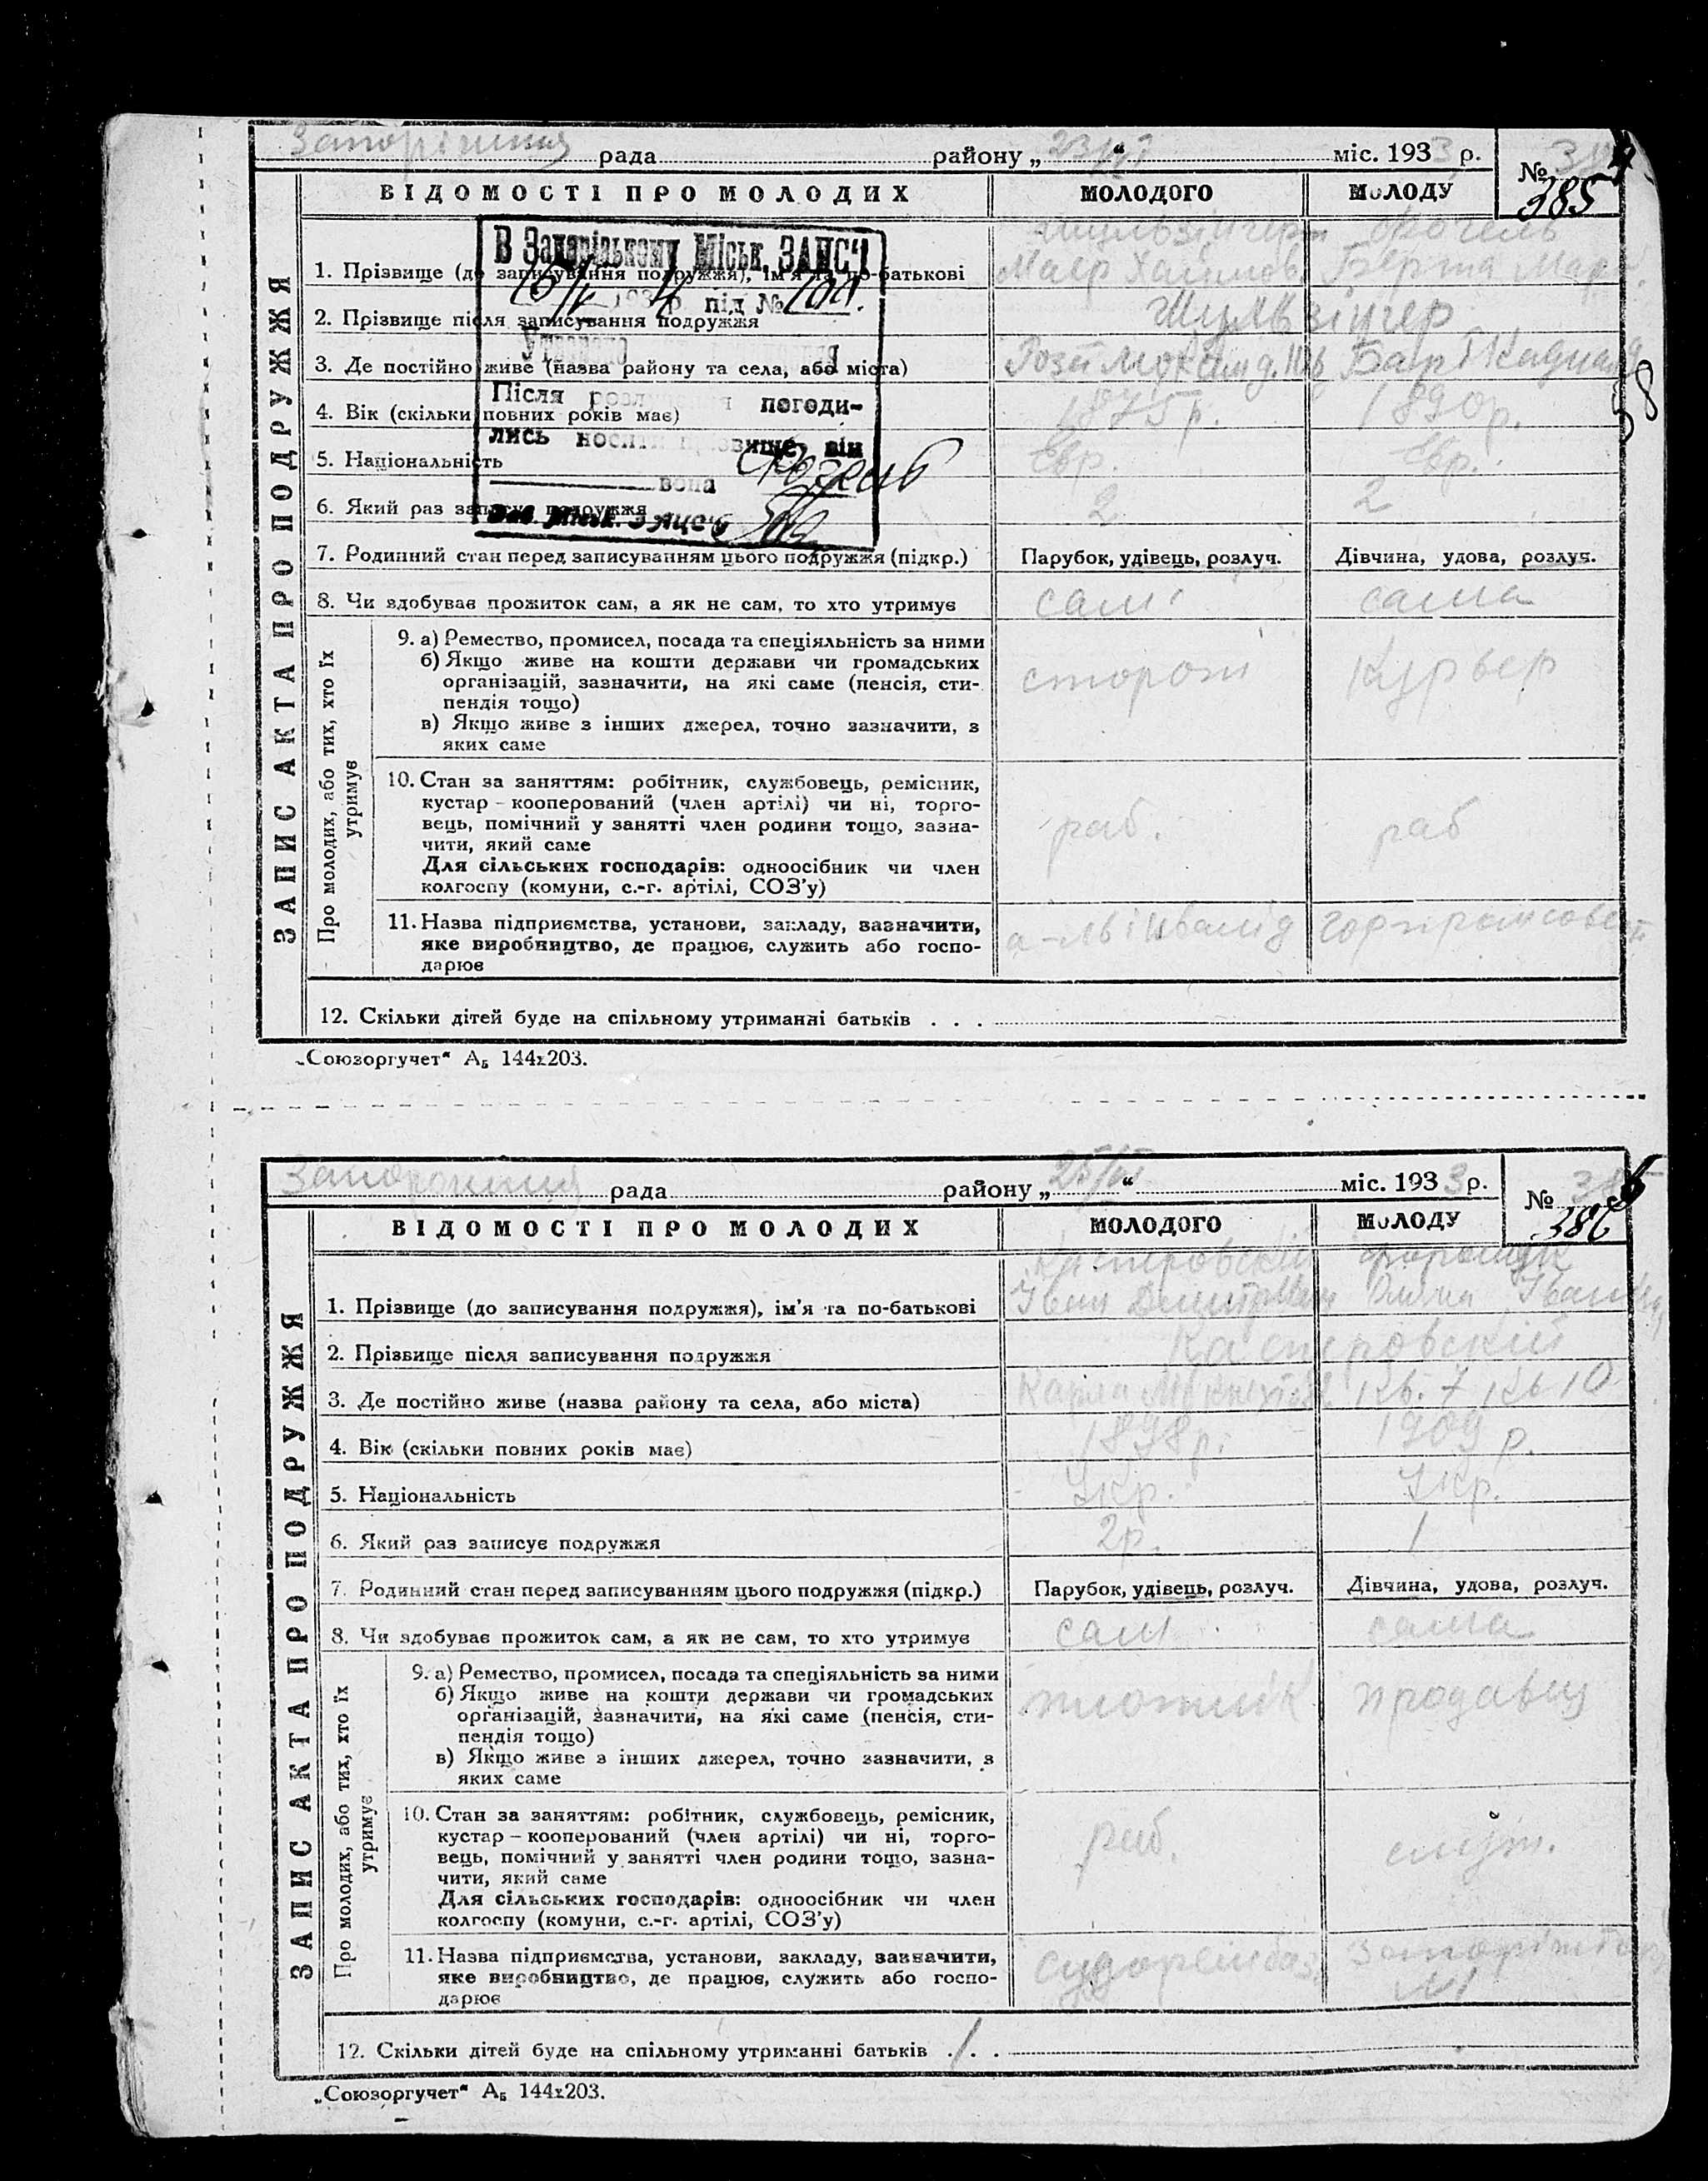 рада района „ 23/VI “ міс. 1933 р.
№
385
ВІДОМОСТІ ПРО МОЛОДИХ
МОЛОДОГО
МОЛОДУ
ЗАПИС АКТА ПРО ПОДРУЖЖЯ
В Запорізькому Міськ. ЗАГС'і
193 р. під №
Після погоди-
лись носити прізвище він
вона
1. Прізвище (до записування подружжя), ім'я та по-батькові
Маер Хаимов. Берта Марк.
2. Прізвище після записування подружжя
Шульзінгер
3. Де постійно живе (назва району та села, або міста)
4. Вік (скільки повних років має)
1875 р.
1890 р.
5. Національність
Євр.
Євр.
6. Який раз записує подружжя
2
2
7. Родинний стан перед записуванням цього подружжя (підкр.)
Парубок, удівець, розлуч.
Дівчина, удова, розлуч.
8. Чи здобуває прожиток сам, а як не сам, то хто утримує
сам
сама
Про молодих, або тих, хто їх утримує
9. а) Ремество, промисел, посада та спеціяльність за ними
б) Якщо живе на кошти держави чи громадських
організацій, зазначити, на які саме (пенсія, сти-
пендія тощо)
в) Якщо живе з інших джерел, точно зазначити, з
яких саме
сторож
Курьер
10. Стан за заняттям: робітник, службовець, ремісник,
кустар – кооперований (член артілі) чи ні, торго-
вець, помічний у занятті член родини тощо, зазна-
чити, який саме
Для сільських господарів: одноосібник чи член
колгоспу (комуни, с.-г. артілі, СОЗ'у)
раб.
раб
11. Назва підприємства, установи, закладу, зазначити,
яке виробництво, де працює, служить або госпо-
дарює
горпромсовет
12. Скільки дітей буде на спільному утриманні батьків . . .
„Союзоргучет“ А₅ 144х203.
рада району „ 25/VI “ міс. 1933 р.
№
386
ВІДОМОСТІ ПРО МОЛОДИХ
МОЛОДОГО
МОЛОДУ
ЗАПИС АКТА ПРО ПОДРУЖЖЯ
1. Прізвище (до записування подружжя), ім'я та по-батькові
Іван
2. Прізвище після записування подружжя
Касперовский
3. Де постійно живе (назва району та села, або міста)
Карла Лібкнехта Кв. 7 Кв 10
4. Вік (скільки повних років має)
1898 р.
1909 р.
5. Національність
Укр.
Укр.
6. Який раз записує подружжя
2 р.
1
7. Родинний стан перед записуванням цього подружжя (підкр.)
Парубок, удівець, розлуч.
Дівчина, удова, розлуч.
8. Чи здобуває прожиток сам, а як не сам, то хто утримує
сам
сама
Про молодих, або тих, хто їх утримує
9. а) Ремество, промисел, посада та спеціяльність за ними
б) Якщо живе на кошти держави чи громадських
організацій, зазначити, на які саме (пенсія, сти-
пендія тощо)
в) Якщо живе з інших джерел, точно зазначити, з
яких саме
плотник
продавщ
10. Стан за заняттям: робітник, службовець, ремісник,
кустар – кооперований (член артілі) чи ні, торго-
вець, помічний у занятті член родини тощо, зазна-
чити, який саме
Для сільських господарів: одноосібник чи член
колгоспу (комуни, с.-г. артілі, СОЗ'у)
раб.
служ.
11. Назва підприємства, установи, закладу, зазначити,
яке виробництво, де працює, служить або госпо-
дарює
судорембаз.
№1
12. Скільки дітей буде на спільному утриманні батьків . . .
1
„Союзоргучет“ А₅ 144х203.